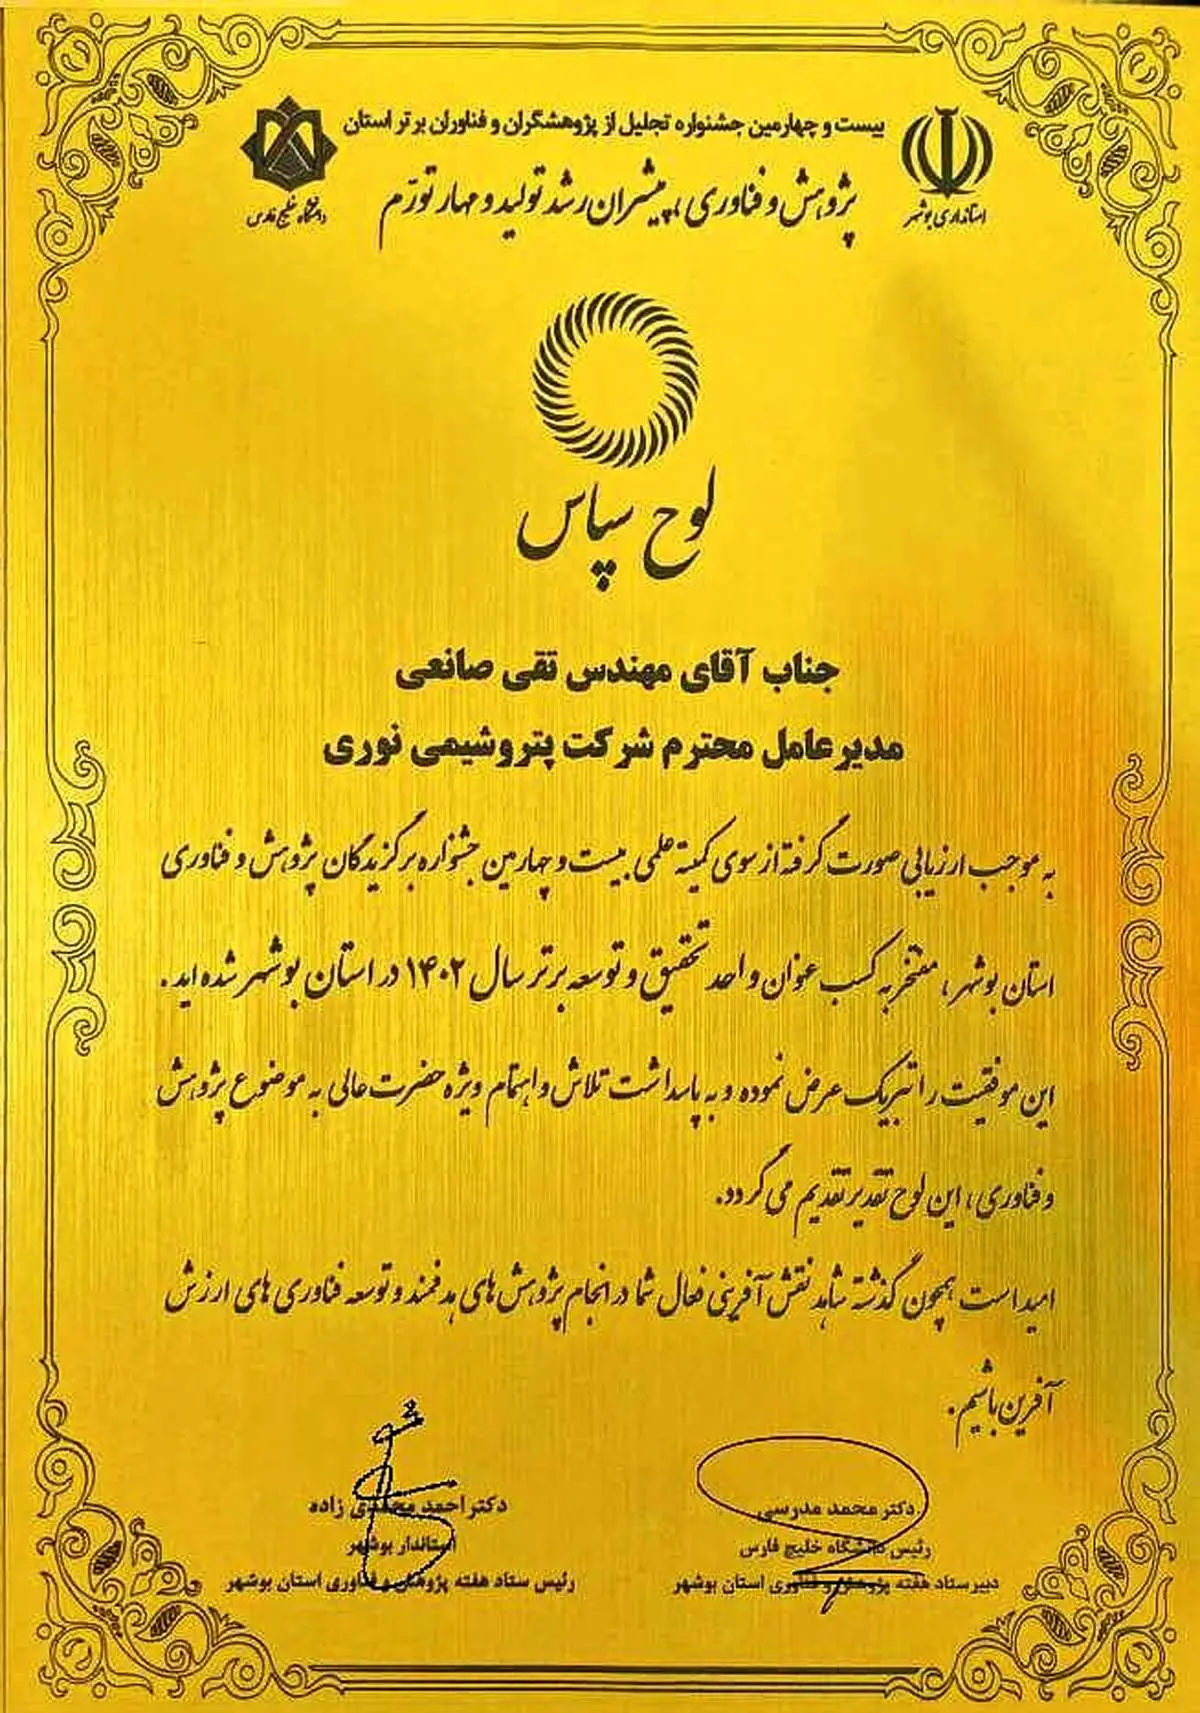 بیست و چهارمین جشنواره تجلیل از پژوهشگران و فناوران برتر استان
پژوهش و فناوری، پیشران رشد تولید و مهار تورّم
استانداری بوشهر
دانشگاه خلیج فارس
لوح سپاس
جناب آقای مهندس تقی صانعی
مدیرعامل محترم شرکت پتروشیمی نوری
به موجب ارزیابی صورت گرفته از سوی کمیته علمی بیست و چهارمین جشنواره برگزیدگان پژوهش و فناوری
استان بوشهر، مفتخر به کسب عنوان واحد تحقیق و توسعه برتر سال ۱۴۰۲ در استان بوشهر شده اید.
این موفقیت را تبریک عرض نموده و به پاسداشت تلاش و اهتمام ویژه حضرت عالی به موضوع پژوهش
و فناوری، این لوح تقدیر تقدیم می گردد.
امید است همچون گذشته شاهد نقش آفرینی فعال شما در انجام پژوهش های هدفمند و توسعه فناوری های ارزش
آفرین باشیم.
دکتر محمد مدرسی
رئیس دانشگاه خلیج فارس
دبیر ستاد هفته پژوهش و فناوری استان بوشهر
دکتر احمد محمدی زاده
استاندار بوشهر
رئیس ستاد هفته پژوهش و فناوری استان بوشهر